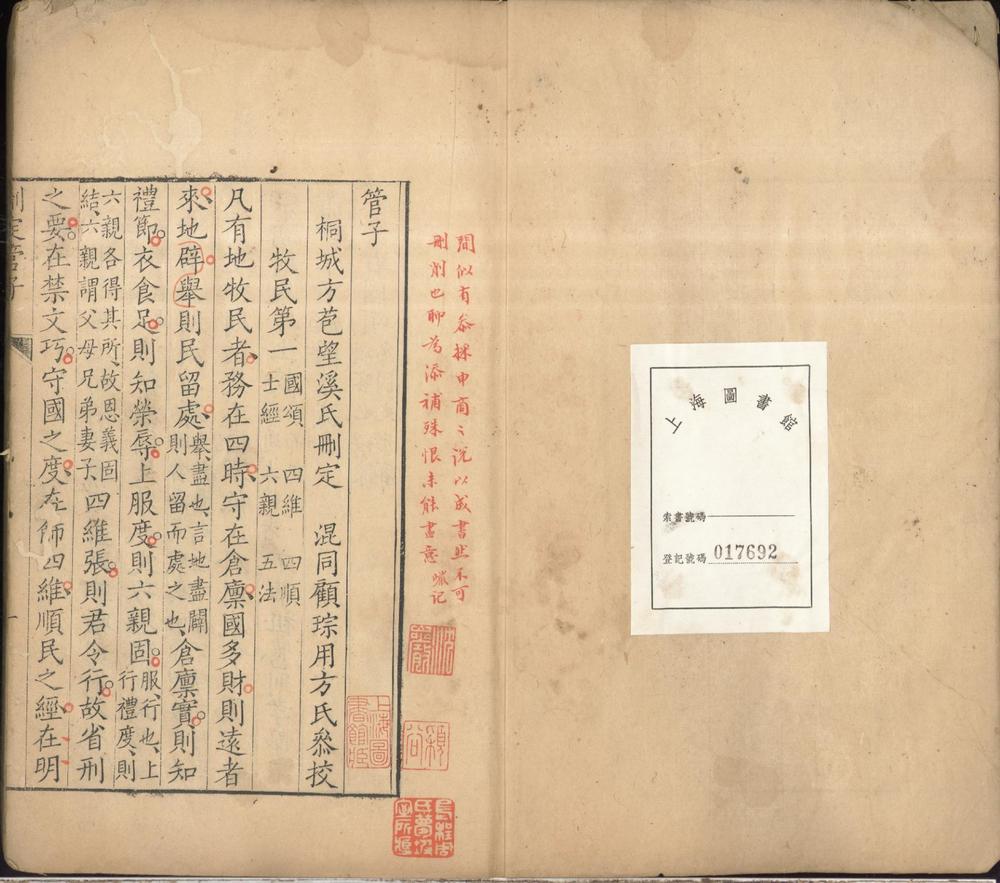 上海圖書館
索書號碼
登記號碼 017692
間似有叅採申商之說以成書然不可
刪削也聊爲添補殊恨未能盡意 記
管子
桐城方苞望溪氏刪定 混同顧琮用方氏叅挍
牧民第一 國頌 四維 四順 士經 六親 五法
凡有地牧民者務在四時守在倉廩國多財則遠者
來地辟舉則民留處舉盡也言地盡闢則人留而處之也倉廩實則知
禮節衣食足則知榮辱上服度則六親固服行也上行禮度則
六親各得其所故恩義固結六親謂父母兄弟妻子四維張則君令行故省刑
之要在禁文巧守國之度在飾四維順民之經在明
刪定管子
一
上海圖書館藏